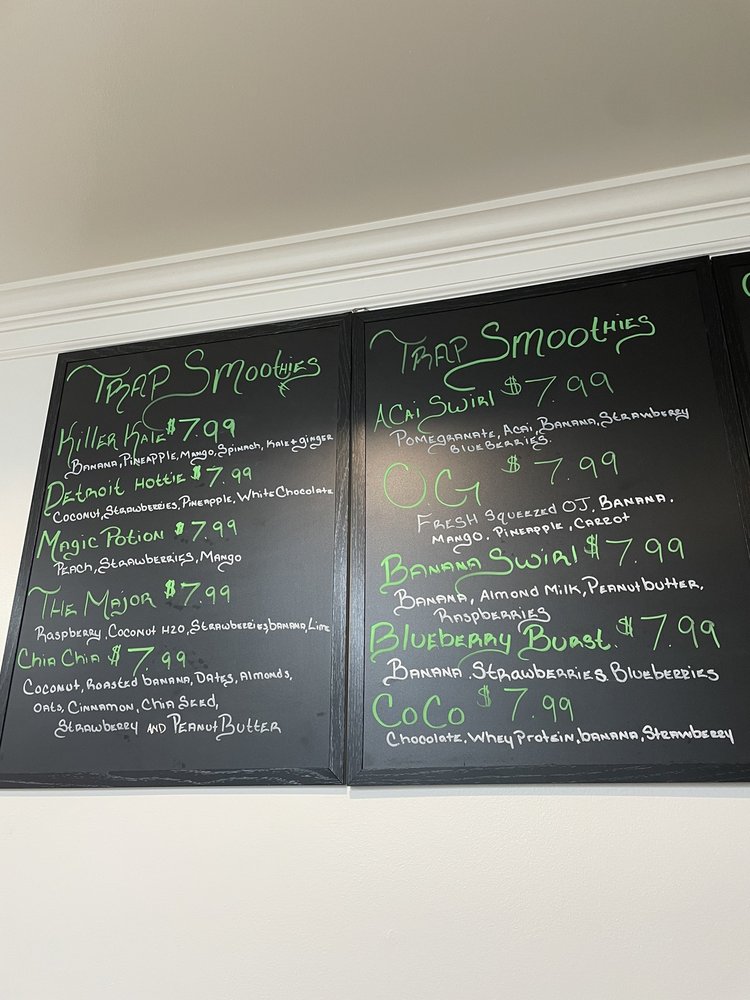 TRAP SMOOTHIES
KILLER KALE $7.99
BANANA, PINEAPPLE, MANGO, SPINACH, KALE + GINGER
DETROIT HOTTIE $7.99
COCONUT, STRAWBERRIES, PINEAPPLE, WHITE CHOCOLATE
MAGIC POTION $7.99
PEACH, STRAWBERRIES, MANGO
THE MAJOR $7.99
RASPBERRY, COCONUT H2O, STRAWBERRIES, BANANA, LIME
CHIA CHIA $7.99
COCONUT, ROASTED BANANA, DATES, ALMONDS,
OATS, CINNAMON, CHIA SEED,
STRAWBERRY AND PEANUT BUTTER
TRAP SMOOTHIES
ACAI SWIRL $7.99
POMEGRANATE, ACAI, BANANA, STRAWBERRY
BLUEBERRIES.
OG $7.99
FRESH SQUEEZED OJ, BANANA,
MANGO, PINEAPPLE, CARROT
BANANA SWIRL $7.99
BANANA, ALMOND MILK, PEANUT BUTTER,
RASPBERRIES
BLUEBERRY BURST. $7.99
BANANA, STRAWBERRIES, BLUEBERRIES
COCO $7.99
CHOCOLATE, WHEY PROTEIN, BANANA, STRAWBERRY